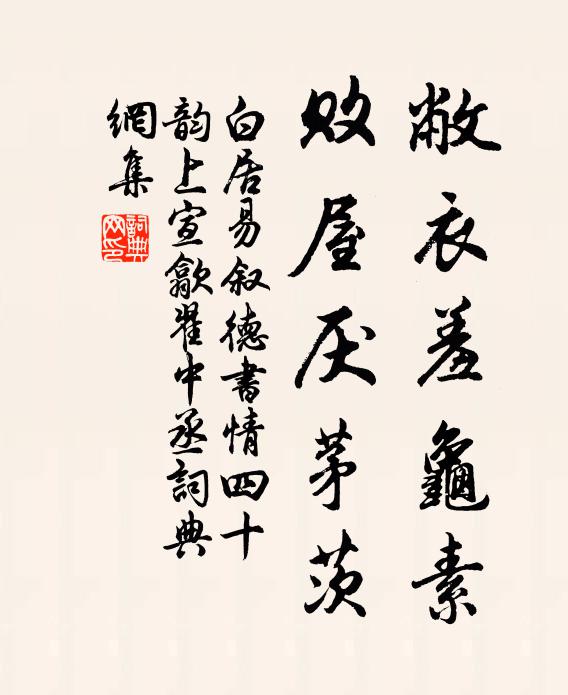 敝衣羞龜素
败屋厌茅茨
白居易叙德書情四十
韵上宣歙翟中丞詞典
網集
詞典
网印